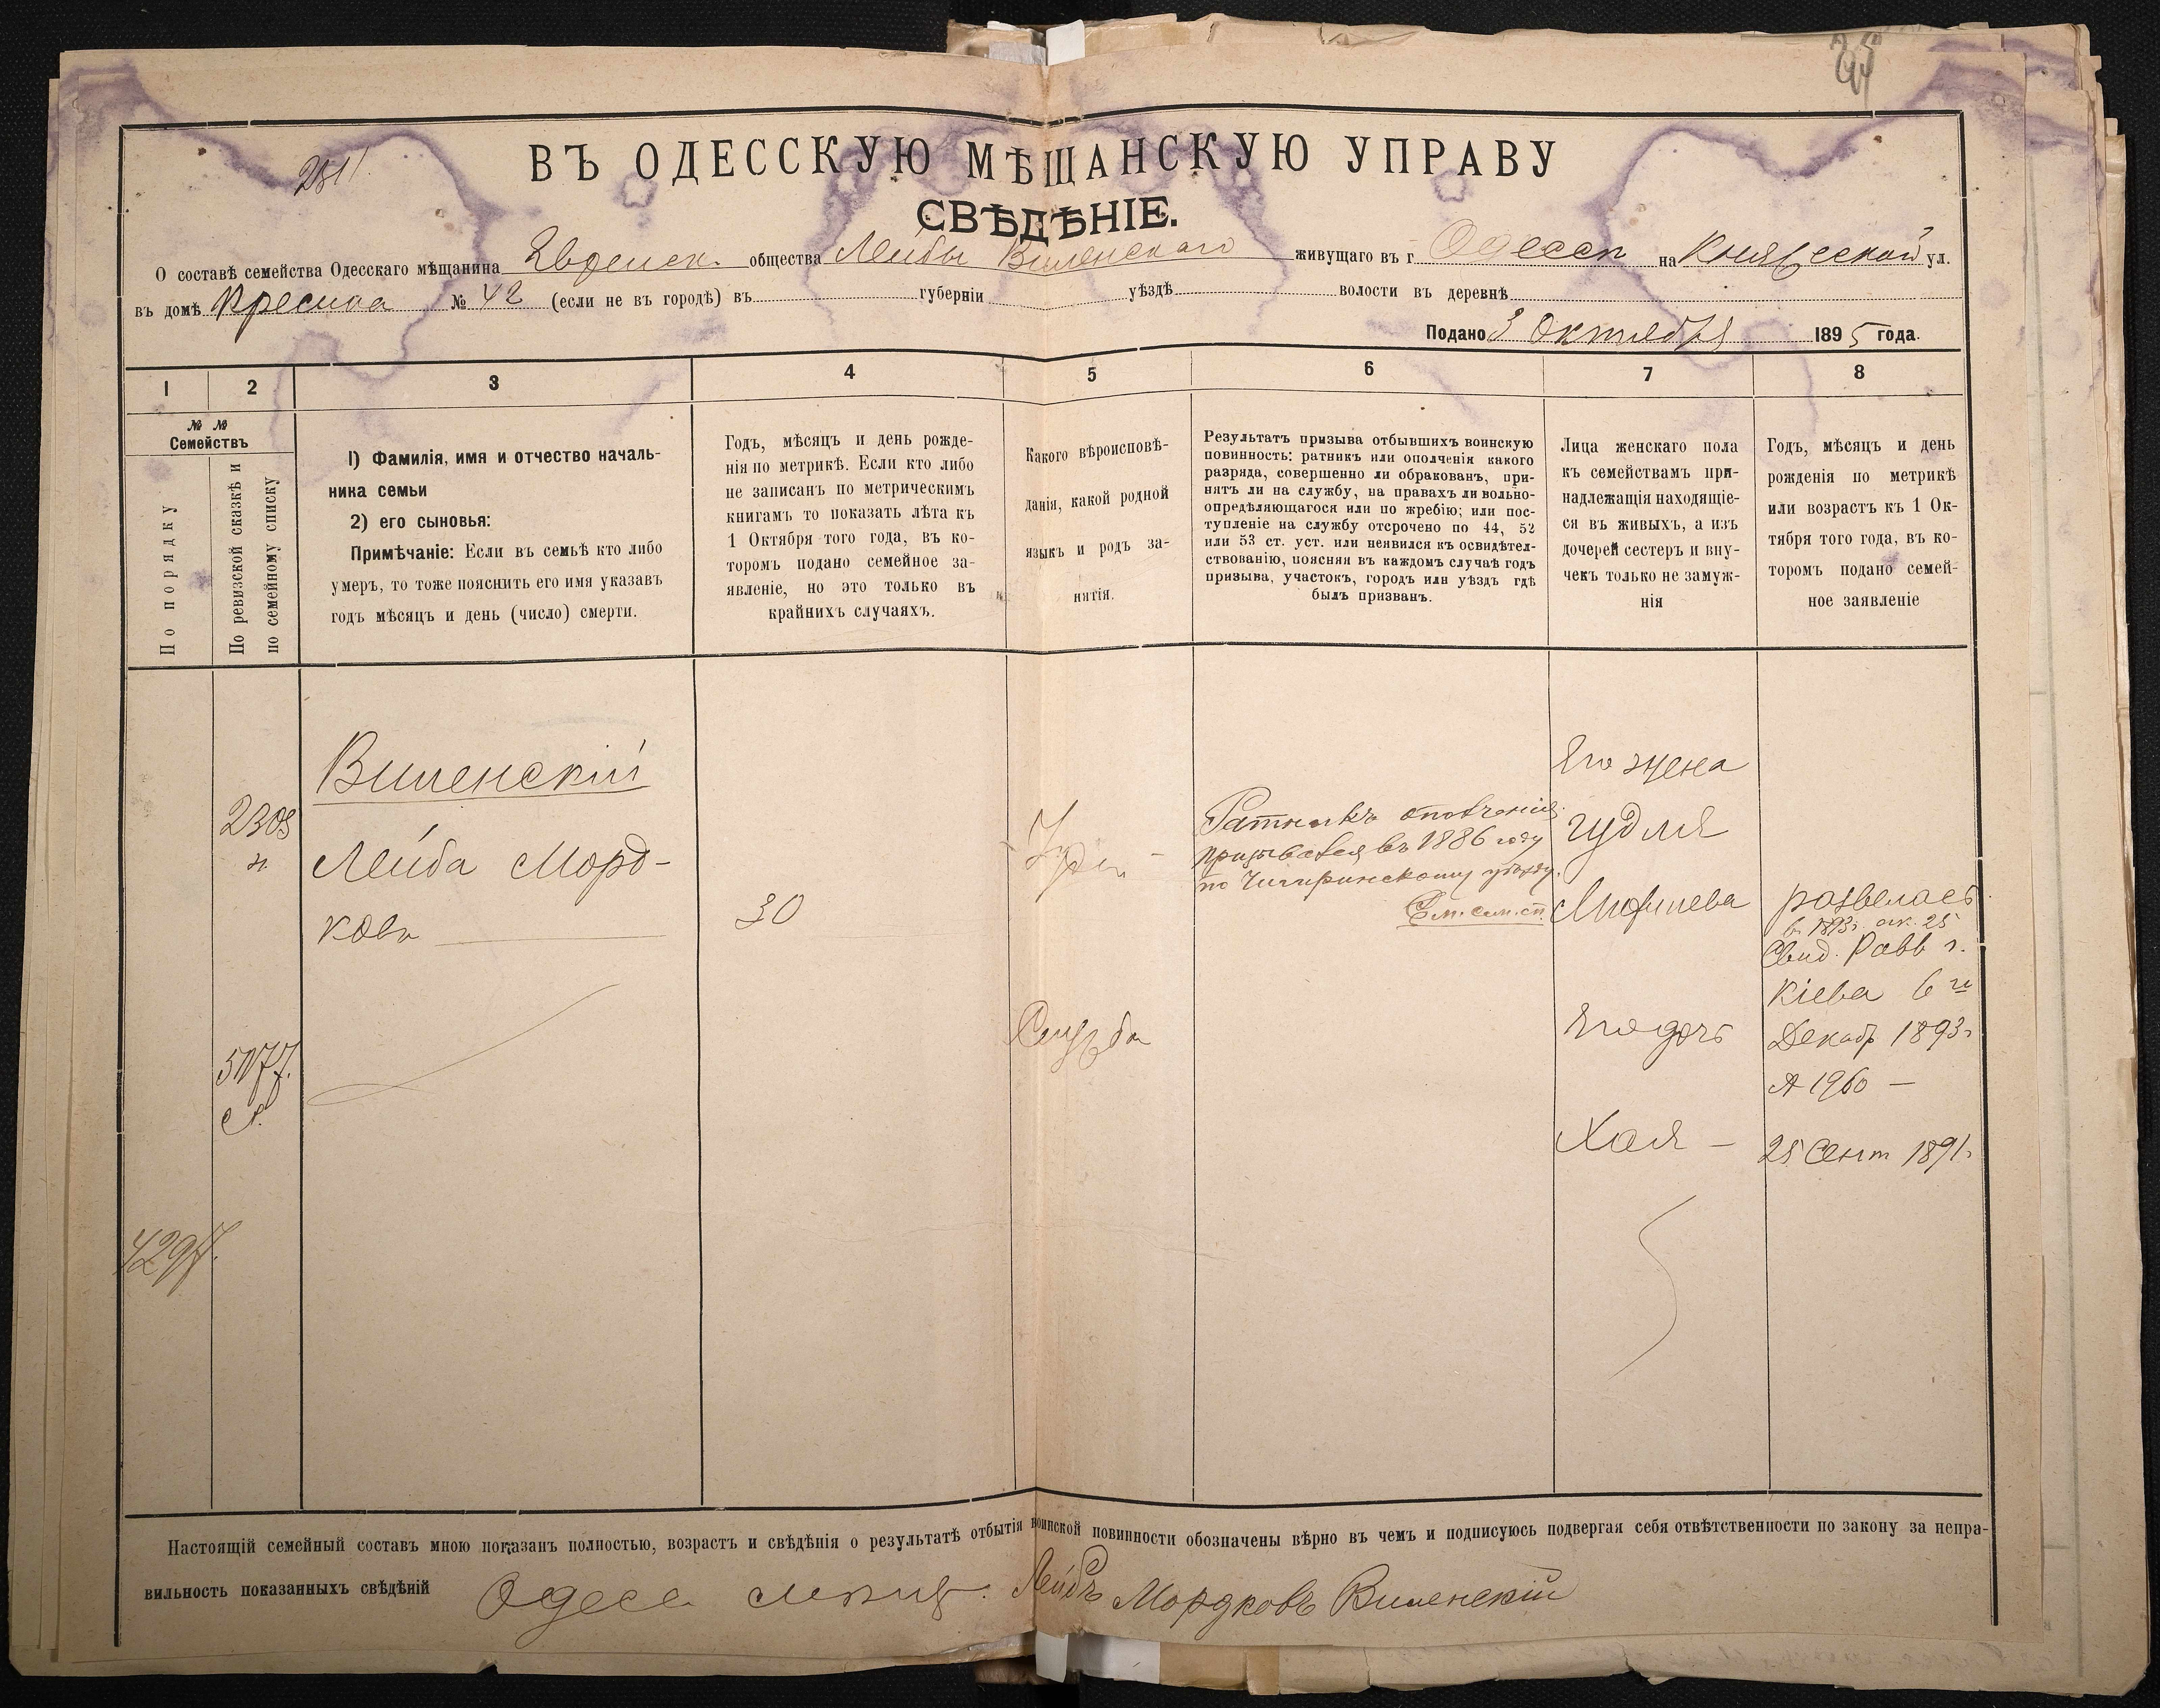 2511.
ВЪ ОДЕССКУЮ МѢЩАНСКУЮ УПРАВУ
СВѢДѢНІЕ.
О составѣ семейства Одесскаго мѣщанина Еврейск. общества Лейбы Виленскаго живущаго въ г. Одессѣ на Княжеской ул.
въ домѣ № 42 (если не въ городѣ) въ губерніи уѣздѣ волости въ деревнѣ
Подано 3 Октября 1895 года.
1 2 3 4 5 6 7 8
№ №
Семействъ
По порядку
По ревизской сказкѣ и
по семейному списку
1) Фамилія, имя и отчество началь-
ника семьи
2) его сыновья:
Примѣчаніе: Если въ семьѣ кто либо
умеръ, то тоже пояснить его имя указавъ
годъ мѣсяцъ и день (число) смерти.
Годъ, мѣсяцъ и день рожде-
нія по метрикѣ. Если кто либо
не записанъ по метрическимъ
книгамъ то показать лѣта къ
1 Октября того года, въ ко-
торомъ подано семейное за-
явленіе, но это только въ
крайнихъ случаяхъ.
Какого вѣроисповѣ-
данія, какой родной
языкъ и родъ за-
нятія.
Результатъ призыва отбывшихъ воинскую
повинность: ратникъ или ополченія какого
разряда, совершенно ли обракованъ, при-
нятъ ли на службу, на правахъ ли вольно-
опредѣляющагося или по жребію; или пос-
тупленіе на службу отсрочено по 44, 52
или 53 ст. уст. или неявился къ освидѣтел-
ствованію, поясняя въ каждомъ случаѣ годъ
призыва, участокъ, городъ или уѣздъ гдѣ
былъ призванъ.
Лица женскаго пола
къ семействамъ при-
надлежащія находящіе-
ся въ живыхъ, а изъ
дочерей сестеръ и вну-
чекъ только не замуж-
нія
Годъ, мѣсяцъ и день
рожденія по метрикѣ
или возрастъ къ 1 Ок-
тября того года, въ ко-
торомъ подано семей-
ное заявленіе
Виленскій
2308
н
Лейба Морд-
ковъ
30
Іудей
Ратникъ ополченія
призывался въ 1886 году
по Чигиринскому уѣзду.
См. сем. сп.
Его жена
Гудля
Мофшева
развелась
в 1893г. ок. 25
Свид. Равв г.
Кіева 6 го
Декабр 1893г
№ 1960 —
5177.
Служба
Его дочь
Хая —
25 Сент 1891г
4297.
Настоящій семейный составъ мною показанъ полностью, возрастъ и свѣдѣнія о результатѣ отбытія воинской повинности обозначены вѣрно въ чемъ и подписуюсь подвергая себя отвѣтственности по закону за непра-
вильность показанныхъ свѣдѣній Одесс. мѣщ. Лейбъ Мордковъ Виленскій